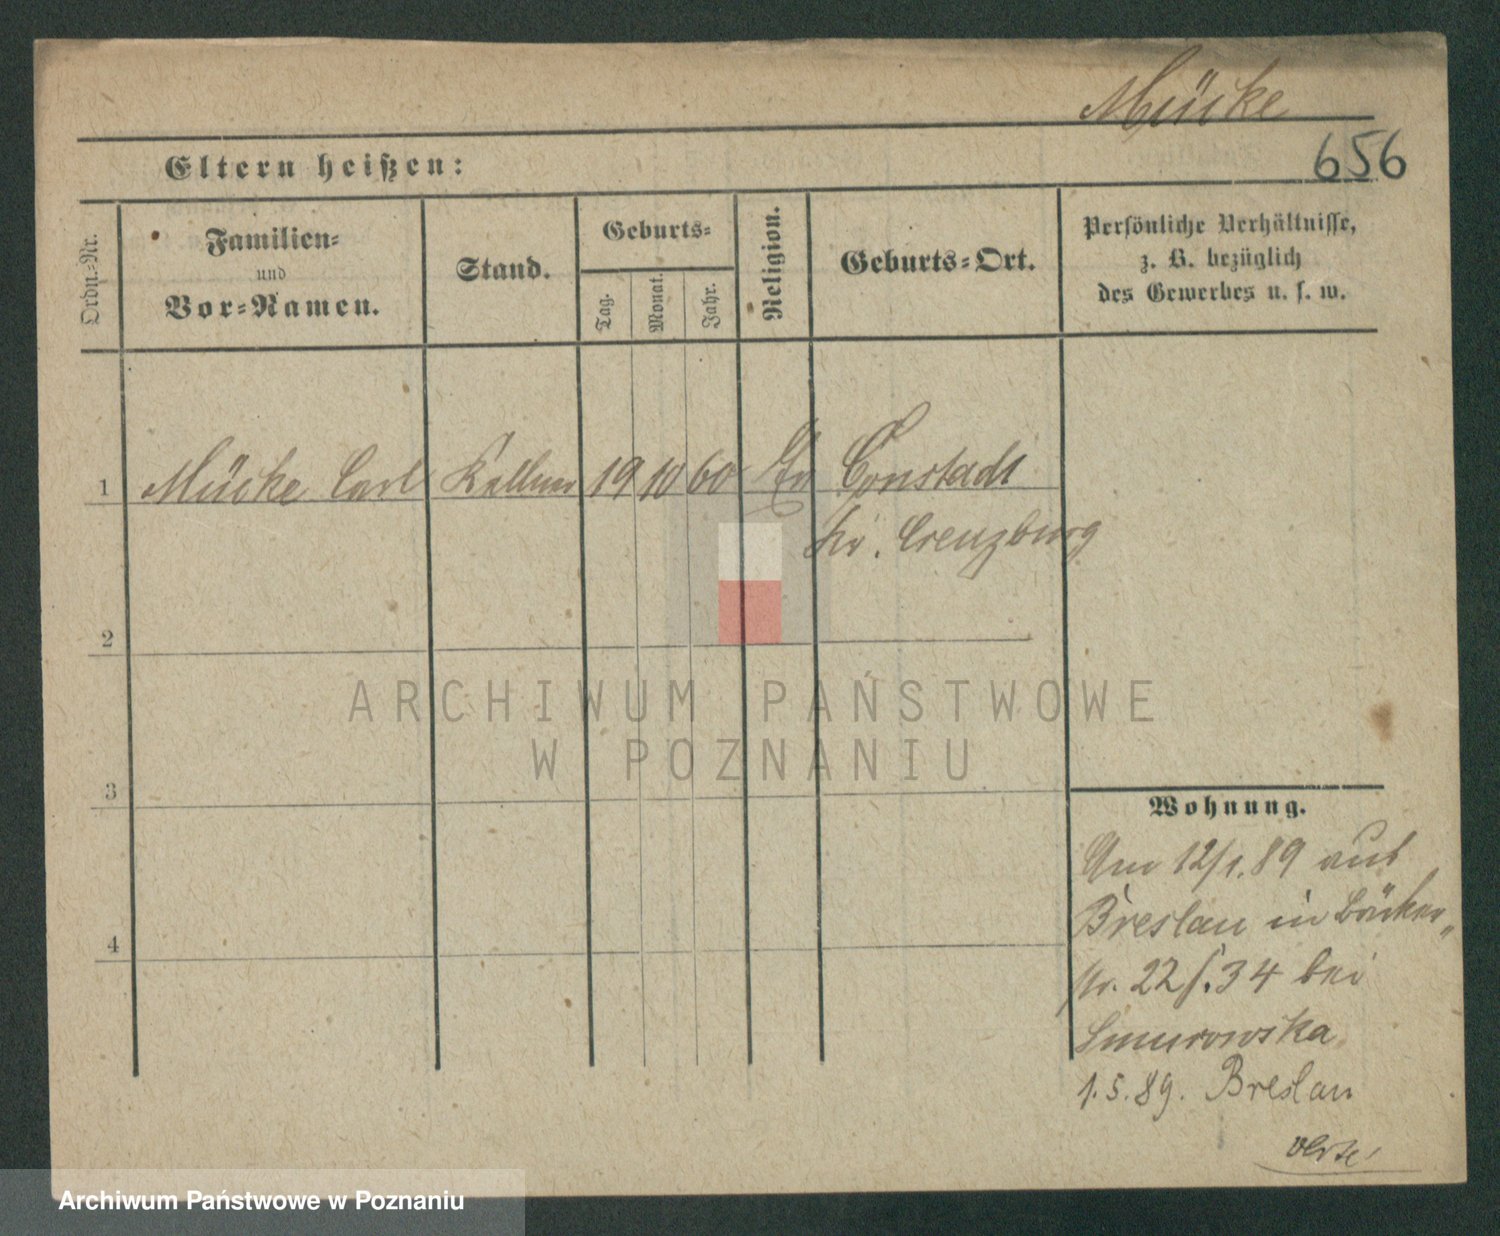 Mücke
656
Eltern heißen:
Ordn.-Nr.
Familien-
und
Vor-Namen.
Stand.
Geburts-
Tag.
Monat.
Jahr.
Religion.
Geburts-Ort.
Persönliche Verhältnisse,
z. B. bezüglich
des Gewerbes u. s. w.
1 Mücke Carl Kellner 19 10 60 Ev Constadt
Kr. Creuzburg
2
3
4
Wohnung.
Am 12/1.89 aus
Breslau in Bäcker„
str. 22/.34 bei
Smurowska
1.5.89. Breslau
ARCHIWUM PAŃSTWOWE
W POZNANIU
Archiwum Państwowe w Poznaniu